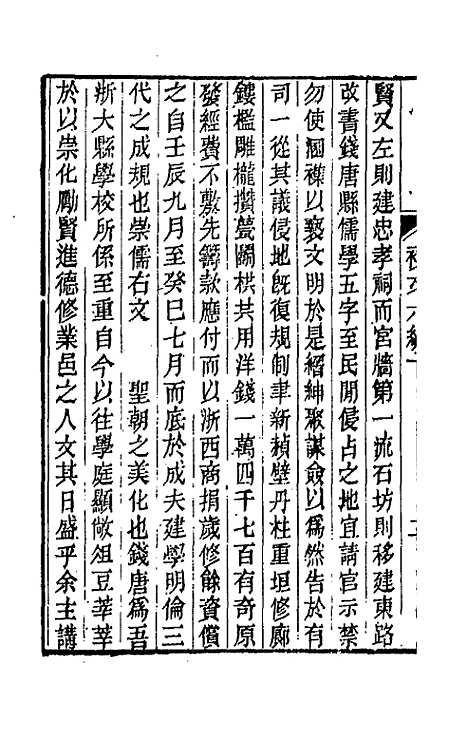 賢又左則建忠孝祠而宮牆第一流石坊則移建東路
改書錢唐縣儒學五字至民閒侵占之地宜請官示禁
勿使溷襍以褻文明於是縉紳聚謀僉以爲然告於有
司一從其議侵地旣復規制聿新赬壁丹柱重垣修廊
鏤檻雕櫳攢甍關栱共用洋錢一萬四千七百有奇原
發經費不敷先籌款應付而以浙西商捐歲修餘資償
之自壬辰九月至癸巳七月而底於成夫建學明倫三
代之成規也崇儒右文　　聖朝之美化也錢唐爲吾
浙大縣學校所係至重自今以往學庭顯敞俎豆莘莘
於以崇化勵賢進德修業邑之人文其日盛乎余主講